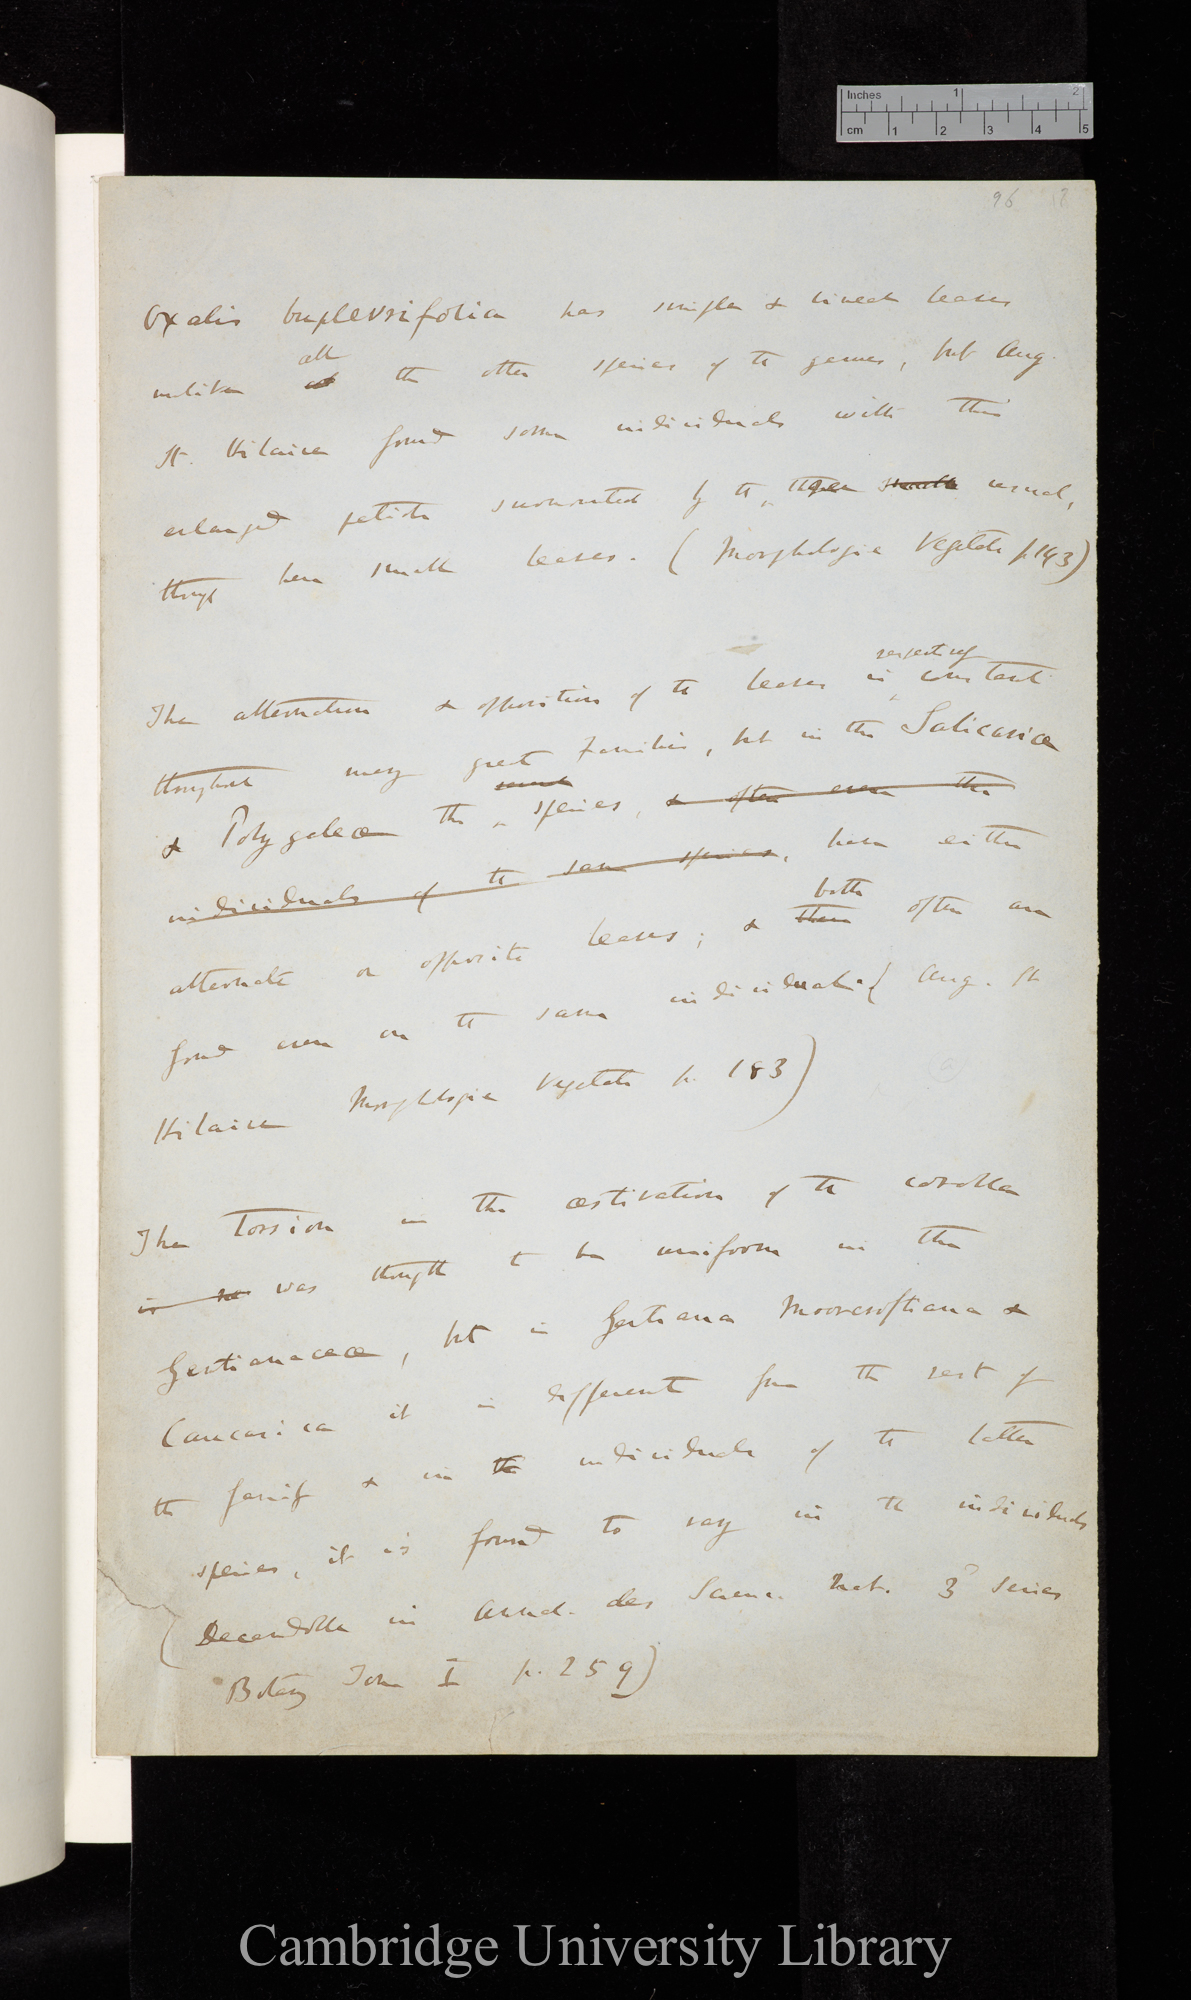 Inches 1 2
cm 1 2 3 4 5
96
Oxalis bupleurifolia has simple & linear leaves
all
unlike the other species of the genus, but Aug.
St. Hilaire found some individuals with this
enlarged petiole surmounted by the three small usual,
though here small leaves. (Morphologie Vegetale p. 143)
respectively
The alternation & opposition of the leaves is constant
throughout many great Families, but in the Salicariæ
several
& Polygaleæ the species, & often even the
individuals of the same species, have either
both
alternate or opposite leaves; & them often are
found even on the same individual. (Aug. St
Hilaire Morphologie Vegetale p. 183)
The Torsion in the æstivation of the corolla
is was thought to be uniform in the
Gentianaceæ, but in Gentiana Moorcroftiana &
Caucasica it is different from the rest of
the family & in the individuals of the latter
species, it is found to vary in the individuals
(Decandolle in Annal. des Scienc. Nat. 3d series
Botany Tom I p. 259)
Cambridge University Library